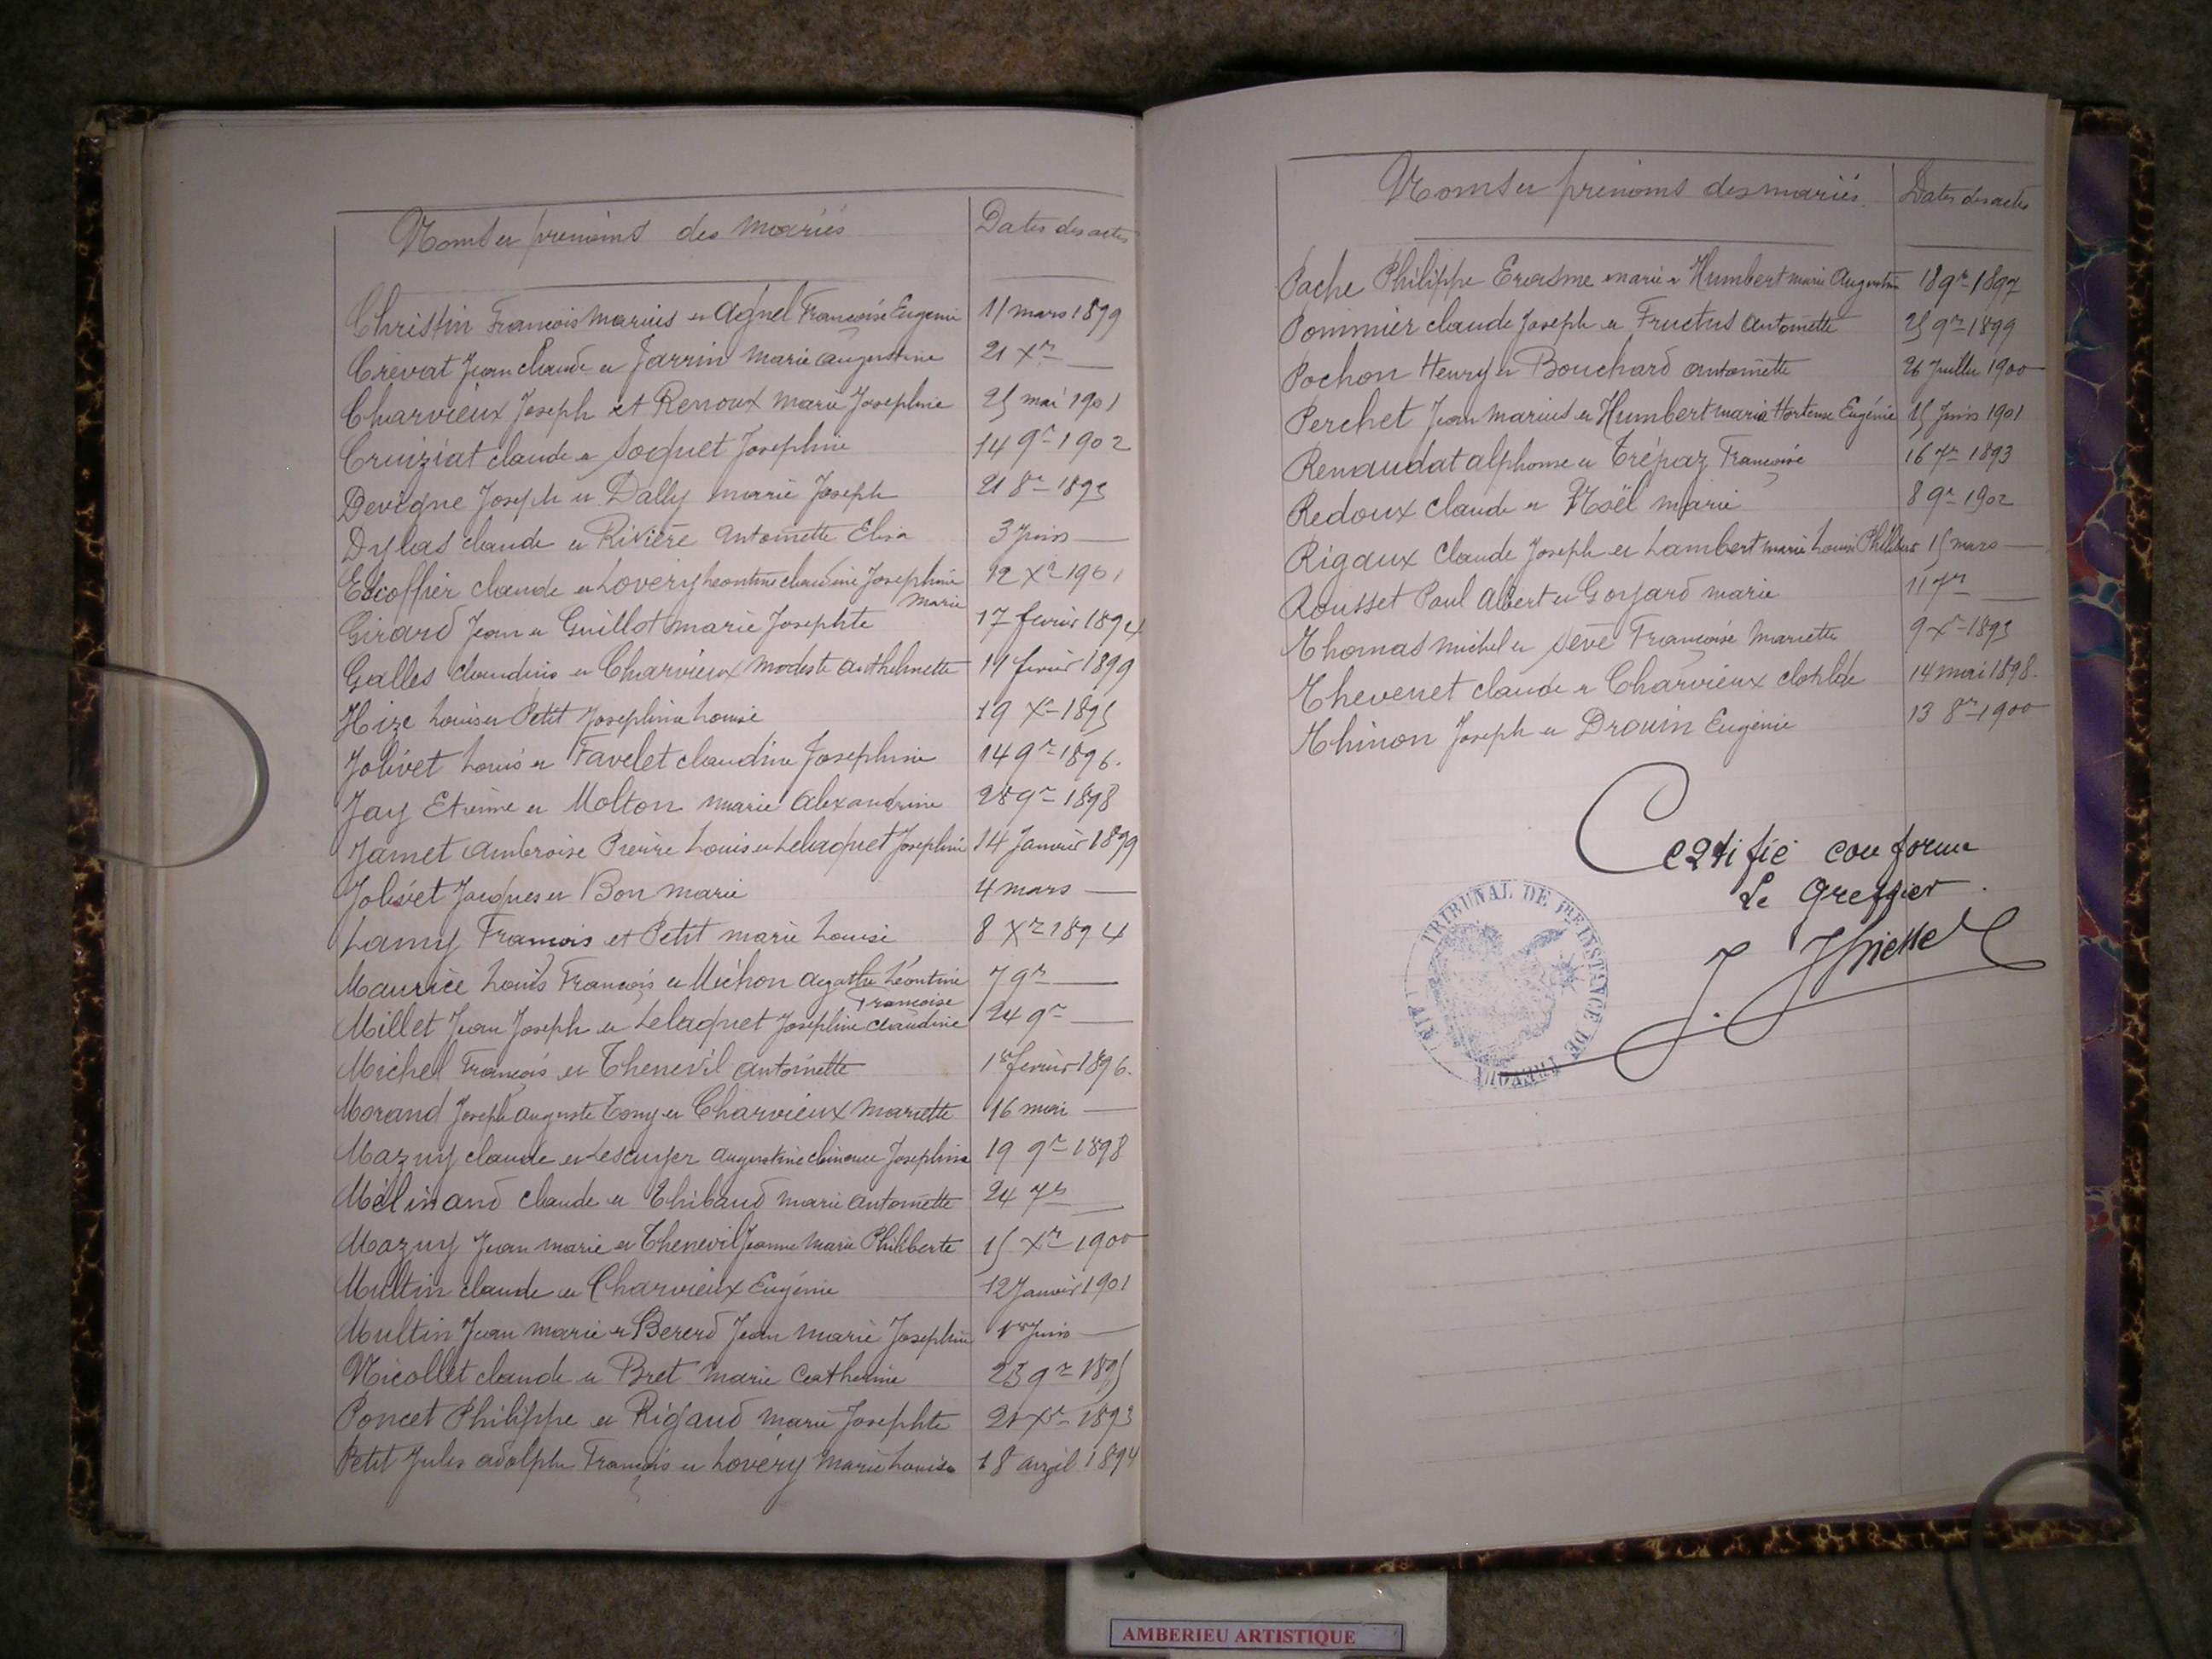 Noms et prénoms des mariés Dates des actes
Christin François Marius et Agnel Françoise Eugénie 11 mars 1899
Crévat Jean Claude et Jarrin Marie Augustine 21 Xre —
Charvieux Joseph et Renoux Marie Josephine 25 mai 1901
Cruiziat Claude et Soquet Josephine 14 9re 1902
Devigne Joseph et Dally Marie Joseph 21 8re 1893
Dylas Claude et Rivière Antoinette Elisa 3 Juin —
Escoffier Claude et Lovery Leontine Claudine Josephine 12 Xre 1901
Marie
Girard Jean et Guillot Marie Josephte 17 février 1894
Galles Claudius et Charvieux Modeste Anthelmette 11 février 1899
Hize Louis et Petit Josephine Louise 19 Xre 1895
Jolivet Louis et Favelet Claudine Josephine 14 9re 1896.
Jay Etienne et Molton Marie Alexandrine 9re 1898
Jamet Ambroise Pierre Louis et Lelaquet Josephine 14 Janvier 1899
Jolivet Jacques et Bon Marie 4 mars —
Lamy François et Petit Marie Louise 8 Xre 1894
Maurice Louis François et Michon Agathe Léontine 7 9re —
Françoise
Millet Jean Joseph et Lelaquet Josephine Claudine 24 9re —
Michel François et Thenevil Antoinette 1er février 1896.
Morand Joseph Auguste Tony et Charvieux Mariette 16 mai —
Mazuy Claude et Lescuyer Augustine Clémence Josephine 19 9re 1898
Mélinand Claude et Thibaud Marie Antoinette 24 7re —
Mazuy Jean Marie et Thenevil Jeanne Marie Philiberte 15 Xre 1900
Multin Claude et Charvieux Eugénie 12 Janvier 1901
Multin Jean Marie et Bererd Jean Marie Josephine 1er Juin —
Nicollet Claude et Bret Marie Catherine 23 9re 1895
Poncet Philippe et Rigaud Marie Josephte 21 Xre 1893
Petit Jules Adolphe François et Lovéry Marie Louise 18 avril 1894
Noms et prénoms des mariés Dates des actes
Pache Philippe Erasme Marie et Humbert Marie Augustine 18 9re 1897
Pommier Claude Joseph et Fructus Antoinette 25 9re 1899
Pochon Henry et Bouchard Antoinette 26 Juillet 1900
Perchet Jean Marius et Humbert Maria Hortense Eugénie 15 Juin 1901
Renaudat Alphonse et Trépaz Françoise 16 7re 1893
Redoux Claude et Noël Marie 8 9re 1902
Rigaux Claude Joseph et Lambert Marie Louise 15 mars —
Rousset Paul Albert et Goyard Marie 11 7re —
Thomas Michel et Sève Françoise Mariette 9 Xre 1893
Thevenet Claude et Charvieux Clotilde 14 mai 1898.
Thinon Joseph et Drouin Eugénie 13 8re 1900
Certifié conforme
Le Greffier.
TRIBUNAL DE 1RE INSTANCE DE TRÉVOUX (AIN)
AMBERIEU ARTISTIQUE